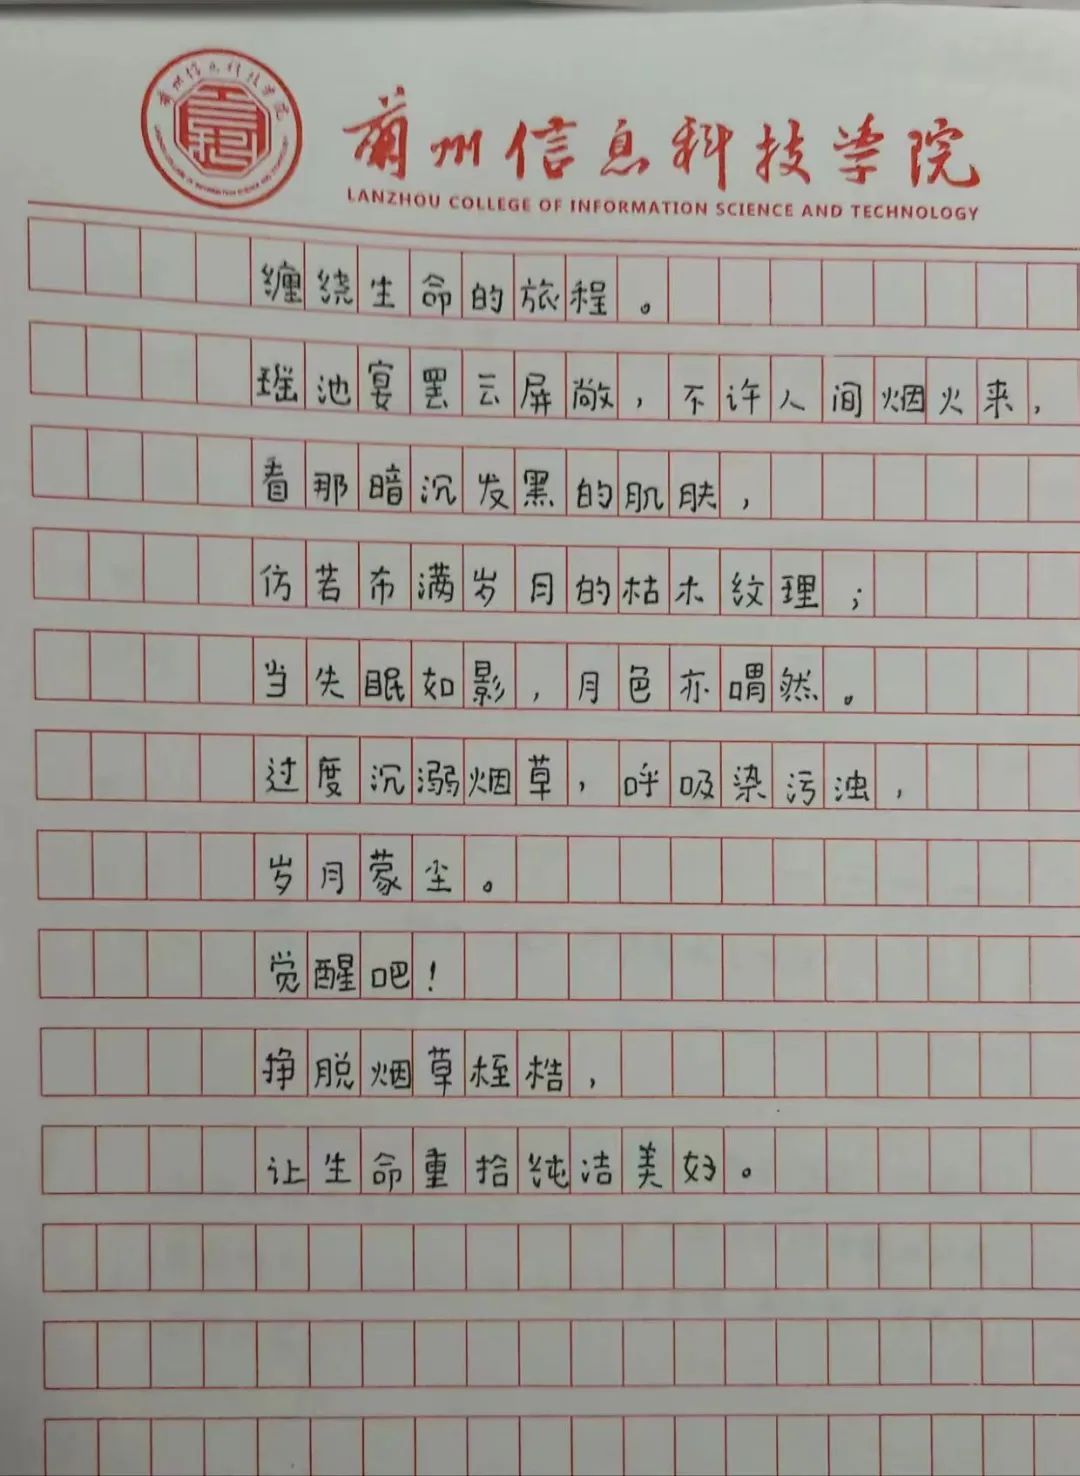 兰州信息科技学院
兰州信息科技学院
LANZHOU COLLEGE OF INFORMATION SCIENCE AND TECHNOLOGY
缠绕生命的旅程。
瑶池宴罢云屏敞，不许人间烟火来，
看那暗沉发黑的肌肤，
仿若布满岁月的枯木纹理；
当失眠如影，月色亦喟然。
过度沉溺烟草，呼吸染污浊，
岁月蒙尘。
觉醒吧！
挣脱烟草桎梏，
让生命重拾纯洁美好。